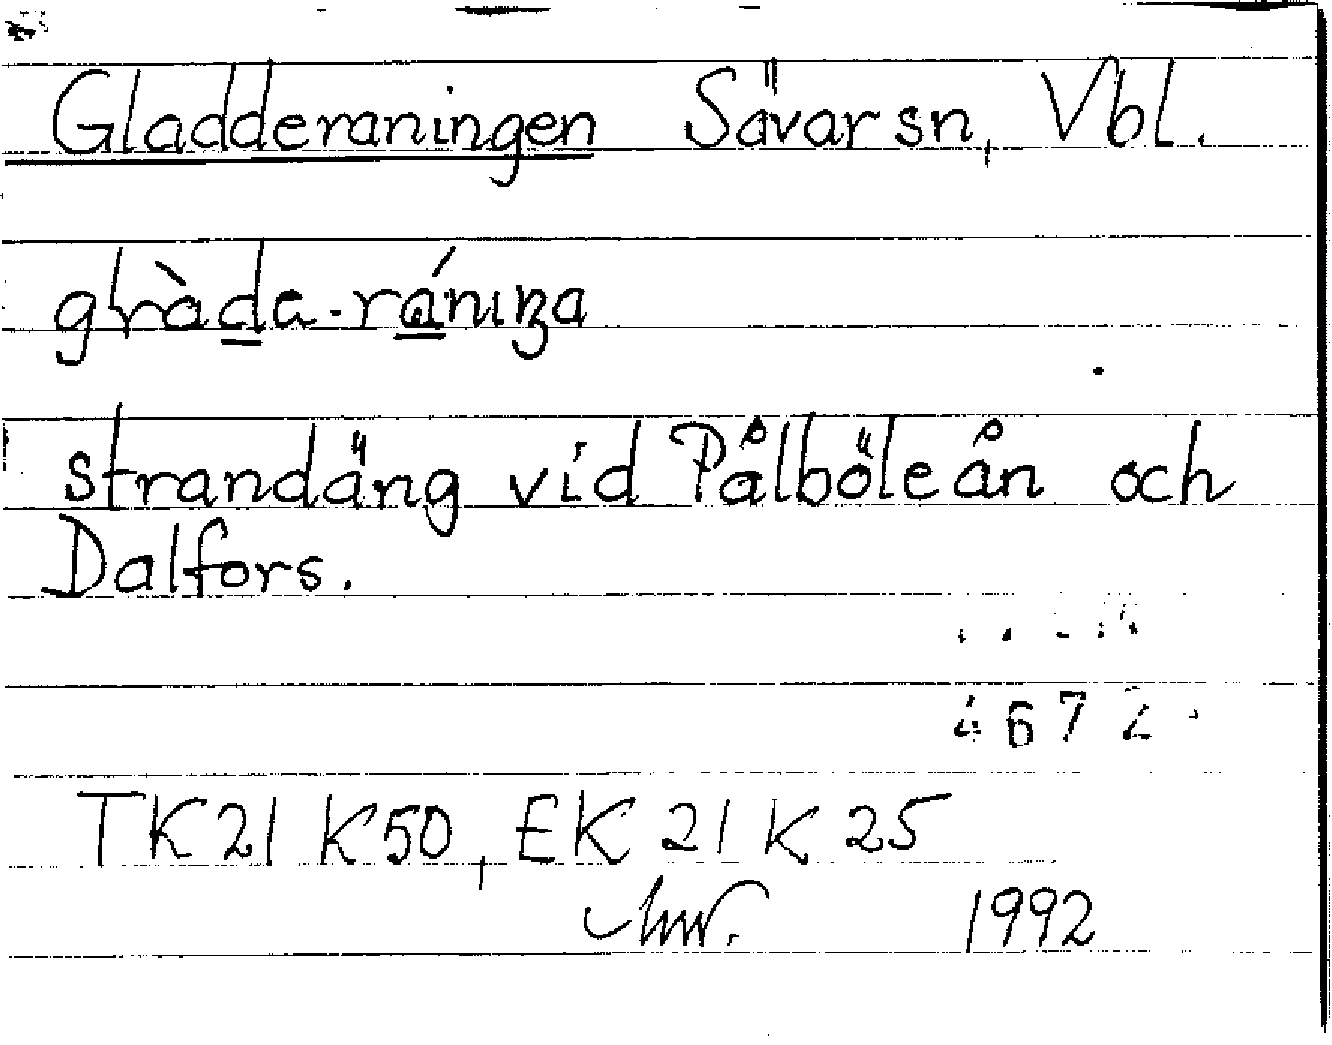 Gladderaningen Sävar sn, Vbl.
glàda-ránıŋa
strandäng vid Pålböleån och
Dalfors.
4672
TK 21 K 50, EK 21 K 25
1992